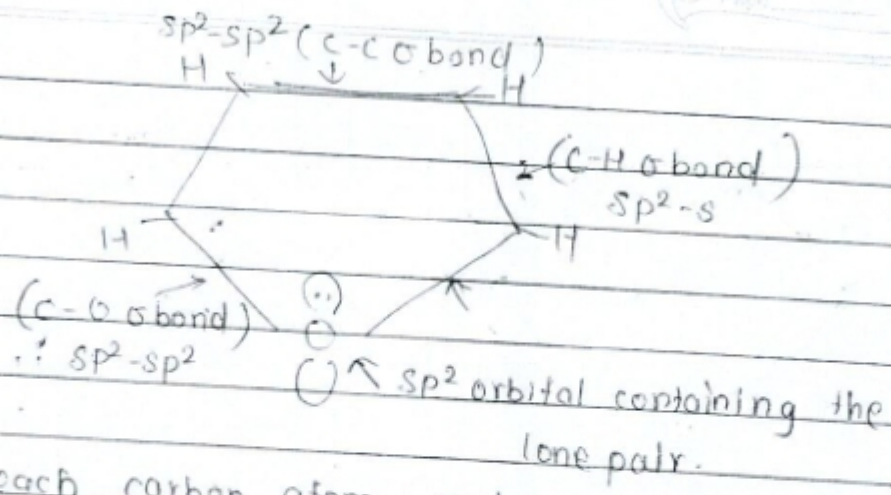 sp²-sp² (C-C σ bond)
H H
(C-H σ bond)
sp²-s
H H
(C-O σ bond)
∴ sp²-sp²
sp² orbital containing the
lone pair.
each carbon atom